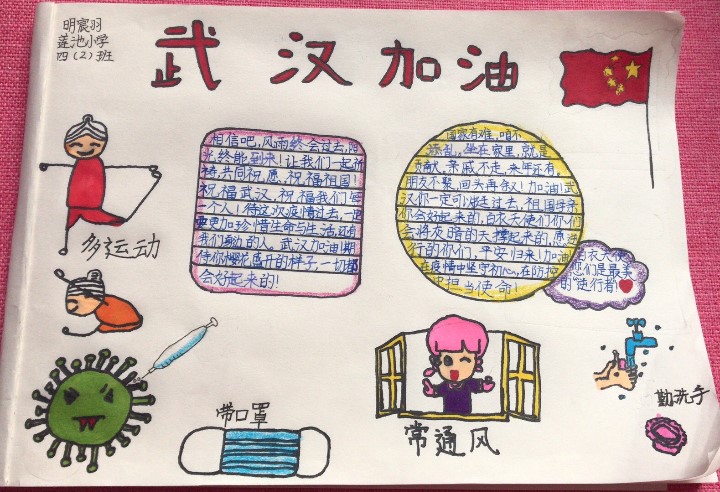 明宸羽
莲池小学
四（2）班
武汉加油
相信吧，风雨终会过去，阳
光终能到来！让我们一起祈
祷，共同祝愿，祝福祖国！
祝福武汉，祝福我们每
一个人！待这次疫情过去，一定
要更加珍惜生命与生活，还有
我们身边的人。武汉加油！期
待你樱花盛开的样子，一切都
会好起来的！
国家有难，咱不
添乱，坐在家里，就是
贡献，亲戚不走，来年还有，
朋友不聚，回头再会！加油！武
汉你一定可以走过去，祖国妈妈
你会好起来的，白衣天使们你们
会将灰暗的天撑起来的，愿逆
行的你们，平安归来！加油
在疫情中坚守初心，在防控
中担当使命！
白衣天使
您们是最美
的“逆行者”
多运动
带口罩
常通风
勤洗手